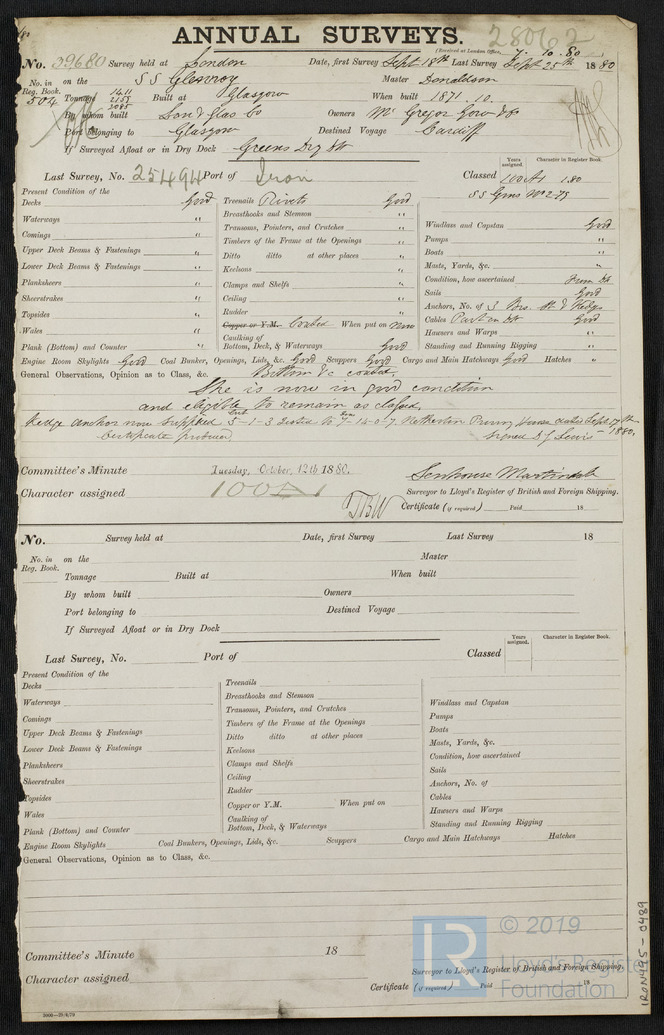 ANNUAL SURVEYS.
28062
(Received at London Office, 7. 10. 80
No. 39680 Survey held at London Date, first Survey Sept 18th Last Survey Sept 25th 1880
No. in Reg. Book. 504 on the S S Glenroy Master Donaldson
Tonnage 1411 2155 2085 Built at Glasgow When built 1871. 10.
By whom built Lond & Glas Co Owners McGregor Gow & Co
Port belonging to Glasgow Destined Voyage Cardiff
If Surveyed Afloat or in Dry Dock Greens Dry Dk
Years assigned. Character in Register Book.
Last Survey, No. 25494 Port of Iron Classed 100A1 1.80
SS Grns No 2-78
Present Condition of the
Decks Good Treenails Rivets Good
Waterways " Breasthooks and Stemson "
Comings " Transoms, Pointers, and Crutches " Windlass and Capstan Good
Upper Deck Beams & Fastenings " Timbers of the Frame at the Openings " Pumps "
Lower Deck Beams & Fastenings " Ditto ditto at other places " Boats "
Planksheers " Keelsons " Masts, Yards, &c. "
Sheerstrakes " Clamps and Shelfs " Condition, how ascertained From Dk
Topsides " Ceiling " Sails Good
Wales " Rudder " Anchors, No. of 3 Brs. St & Kedge
Copper or Y.M. Coated When put on now Cables Part on Dk Good
Plank (Bottom) and Counter " Caulking of Bottom, Deck, & Waterways Good Hawsers and Warps "
Standing and Running Rigging "
Engine Room Skylights Good Coal Bunker, Openings, Lids, &c. Good Scuppers Good Cargo and Main Hatchways Good Hatches "
General Observations, Opinion as to Class, &c. Bottom &c coated.
She is now in good condition
and eligible to remain as classed.
Kedge anchor now supplied 5-1-3 tested to 7-14-0-7 Netherton Proving House dated Sept 17th 1880.
Certificate produced signed D J Lewis
Committee's Minute Tuesday, October, 12th 1880.
Character assigned 100A1
Senhouse Martindale
Surveyor to Lloyd's Register of British and Foreign Shipping.
TBW Certificate (if required) Paid 18
No. Survey held at Date, first Survey Last Survey 18
No. in Reg. Book. on the Master
Tonnage Built at When built
By whom built Owners
Port belonging to Destined Voyage
If Surveyed Afloat or in Dry Dock
Years assigned. Character in Register Book.
Last Survey, No. Port of Classed
Present Condition of the
Decks Treenails
Waterways Breasthooks and Stemson Windlass and Capstan
Comings Transoms, Pointers, and Crutches Pumps
Upper Deck Beams & Fastenings Timbers of the Frame at the Openings Boats
Lower Deck Beams & Fastenings Ditto ditto at other places Masts, Yards, &c.
Planksheers Keelsons Condition, how ascertained
Sheerstrakes Clamps and Shelfs Sails
Topsides Ceiling Anchors, No. of
Wales Rudder Cables
Copper or Y.M. When put on Hawsers and Warps
Plank (Bottom) and Counter Caulking of Bottom, Deck, & Waterways Standing and Running Rigging
Engine Room Skylights Coal Bunkers, Openings, Lids, &c. Scuppers Cargo and Main Hatchways Hatches
General Observations, Opinion as to Class, &c.
Committee's Minute 18
Character assigned
Surveyor to Lloyd's Register of British and Foreign Shipping.
Certificate (if required) Paid 18
LR
© 2019
Lloyd's Register
Foundation
IRON495-0489